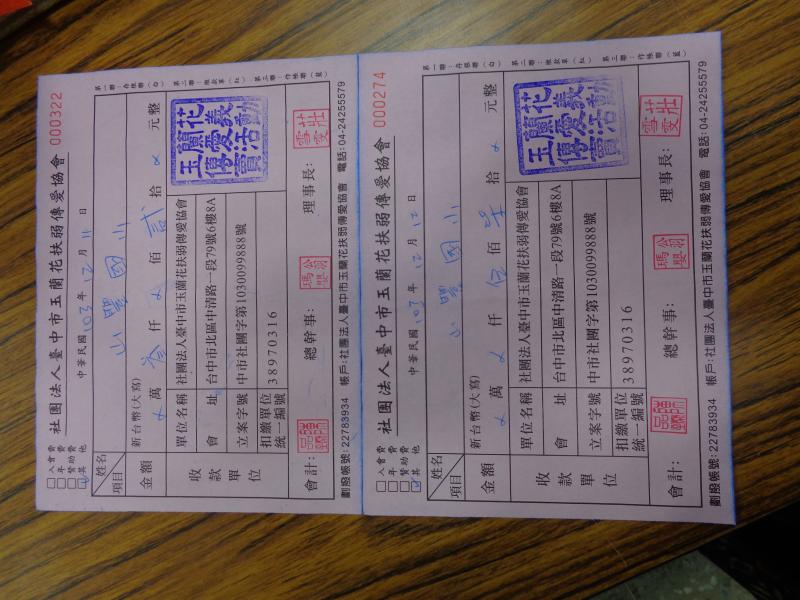 社團法人臺中市玉蘭花扶弱傳愛協會 000322
□入會費
□年費
□贊助費
☑其他
中華民國 103 年 12 月 11 日
第一聯:存根聯(白) 第二聯:繳款單(紅) 第三聯:作帳聯(藍)
姓名
項目
國小
金額
新台幣(大寫) 萬 叁 仟 佰 貳 拾 元整
收款單位
單位名稱 社團法人臺中市玉蘭花扶弱傳愛協會
會址 台中市北區中清路一段79號6樓8A
立案字號 中市社團字第1030099888號
扣繳單位統一編號 38970316
玉蘭花
傳愛義
賣活動
會計: 總幹事: 理事長:
莊雯雯
劃撥帳號:22783934 帳戶:社團法人臺中市玉蘭花扶弱傳愛協會 電話:04-24255579
社團法人臺中市玉蘭花扶弱傳愛協會 000274
□入會費
□年費
□贊助費
☑其他
中華民國 103 年 12 月 12 日
第一聯:存根聯(白) 第二聯:繳款單(紅) 第三聯:作帳聯(藍)
姓名
項目
國小
金額
新台幣(大寫) 萬 仟 伍 佰 拾 元整
收款單位
單位名稱 社團法人臺中市玉蘭花扶弱傳愛協會
會址 台中市北區中清路一段79號6樓8A
立案字號 中市社團字第1030099888號
扣繳單位統一編號 38970316
玉蘭花
傳愛義
賣活動
會計: 總幹事: 理事長:
莊雯雯
劃撥帳號:22783934 帳戶:社團法人臺中市玉蘭花扶弱傳愛協會 電話:04-24255579